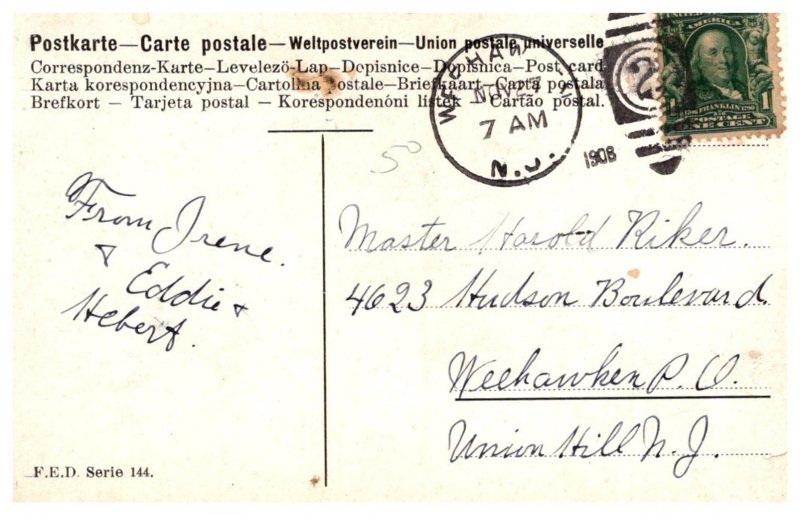 Postkarte—Carte postale—Weltpostverein—Union postale universelle
Correspondenz-Karte—Levelező-Lap—Dopisnice—Dopisnica—Post card
Karta korespondencyjna—Cartolina postale—Briefkaart—Carta postala
Brefkort — Tarjeta postal — Korespondenóni listek — Cartão postal.
WEEHAW
NOV 27
7 AM
N.J.
1908
2
AMERICA
FRANKLIN
POSTAGE
ONE CENT
1
50
From Irene.
& Eddie &
Hebert.
Master Harold Riker.
4623 Hudson Boulevard
Weehawken P. O.
Union Hill N. J.
F.E.D. Serie 144.